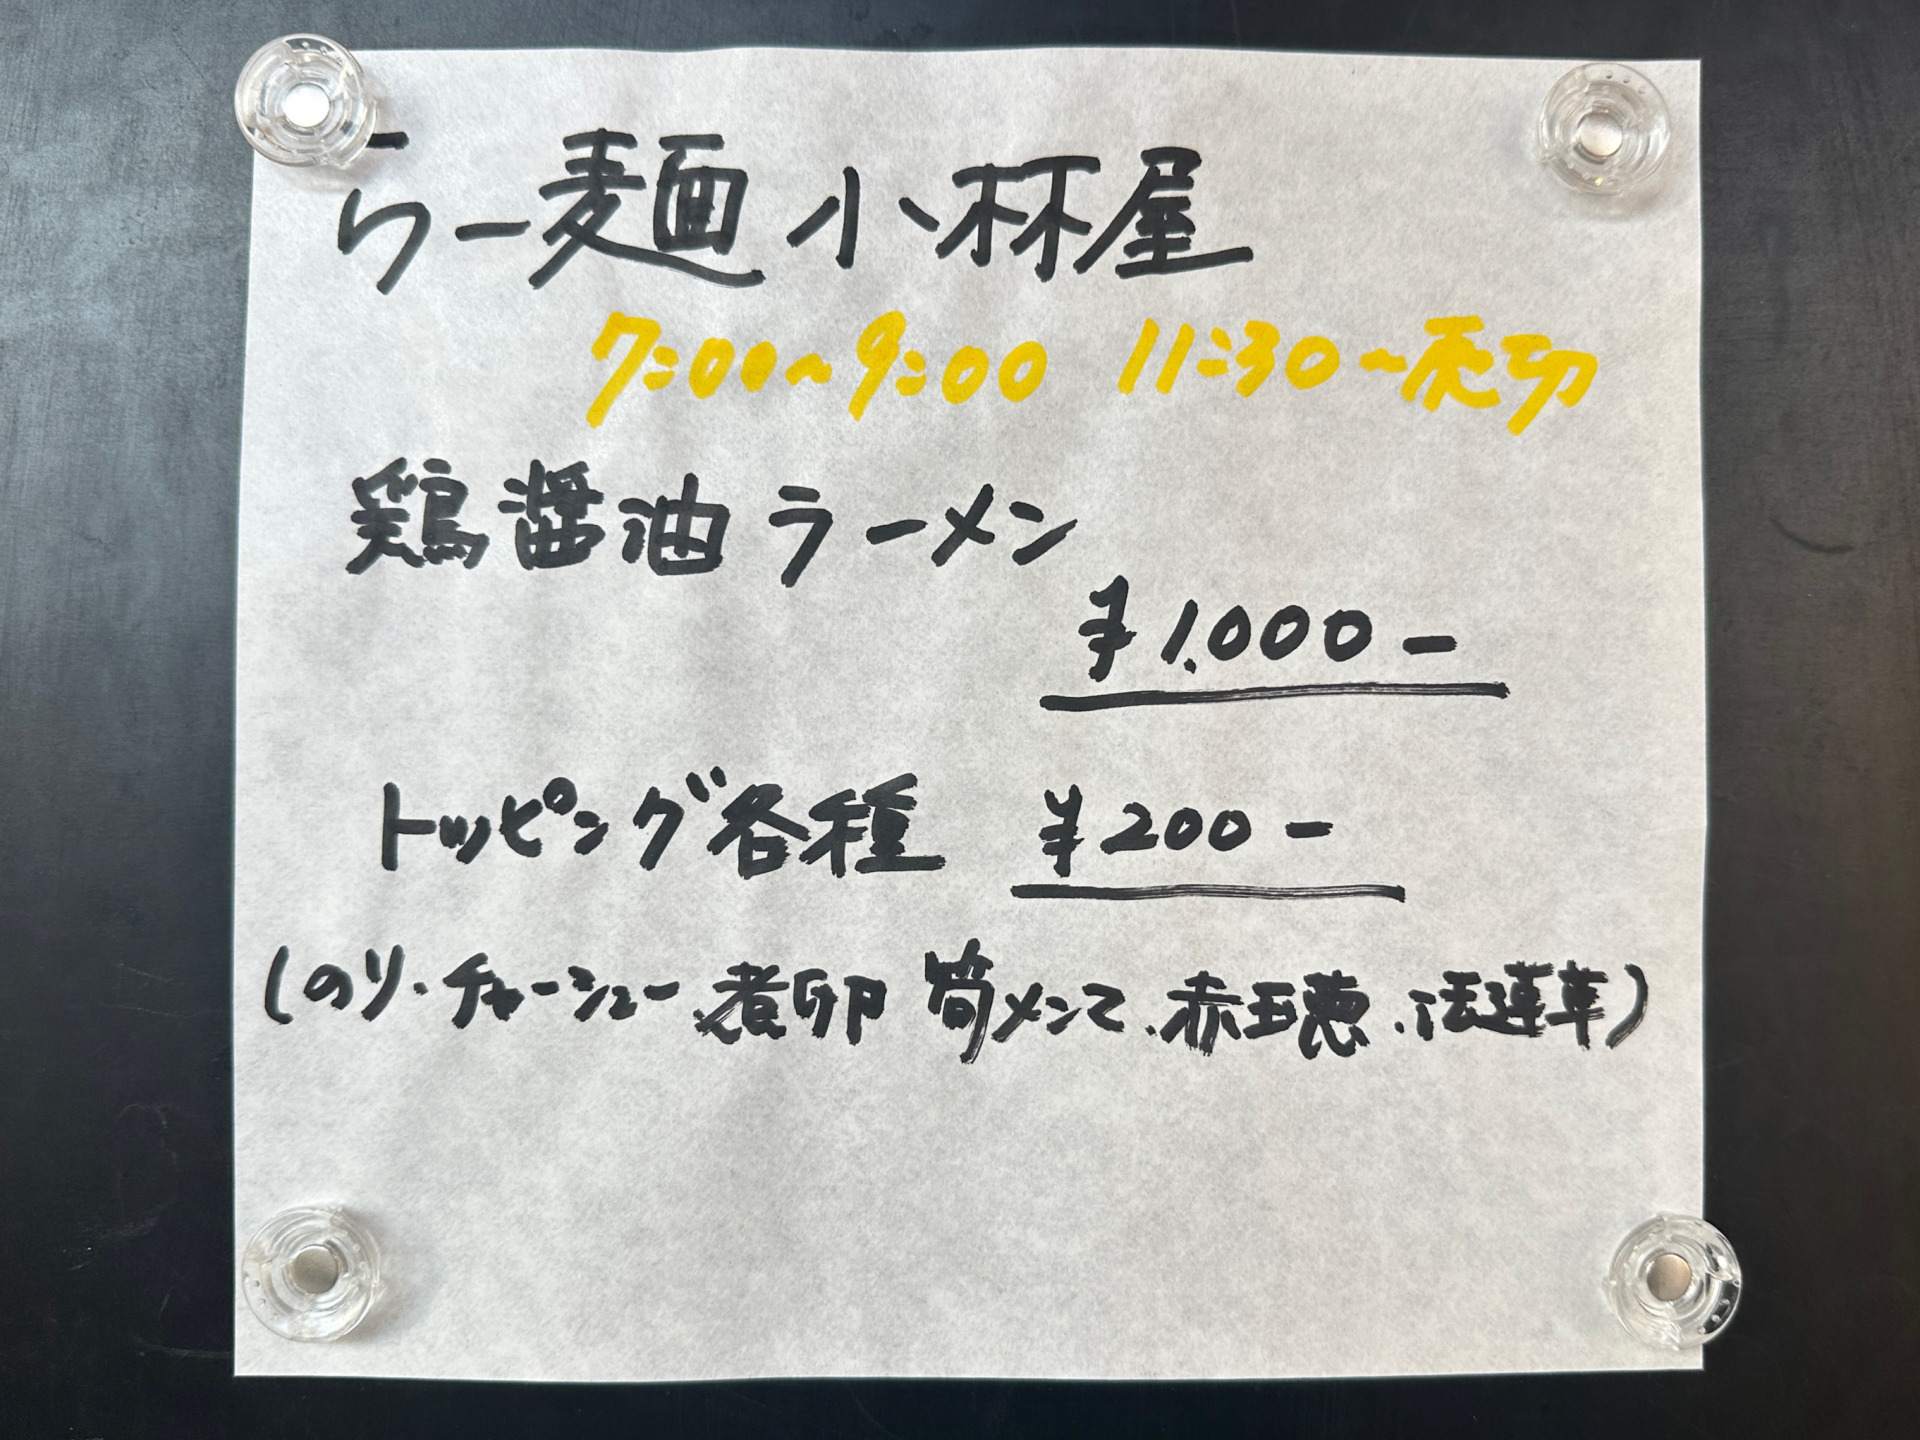 らー麺 小杯屋
7:00〜9:00 11:30〜売切
鶏醤油ラーメン
¥1,000-
トッピング各種 ¥200-
(のり・チャーシュー・煮卵 筍メンマ・赤玉葱・法蓮草)